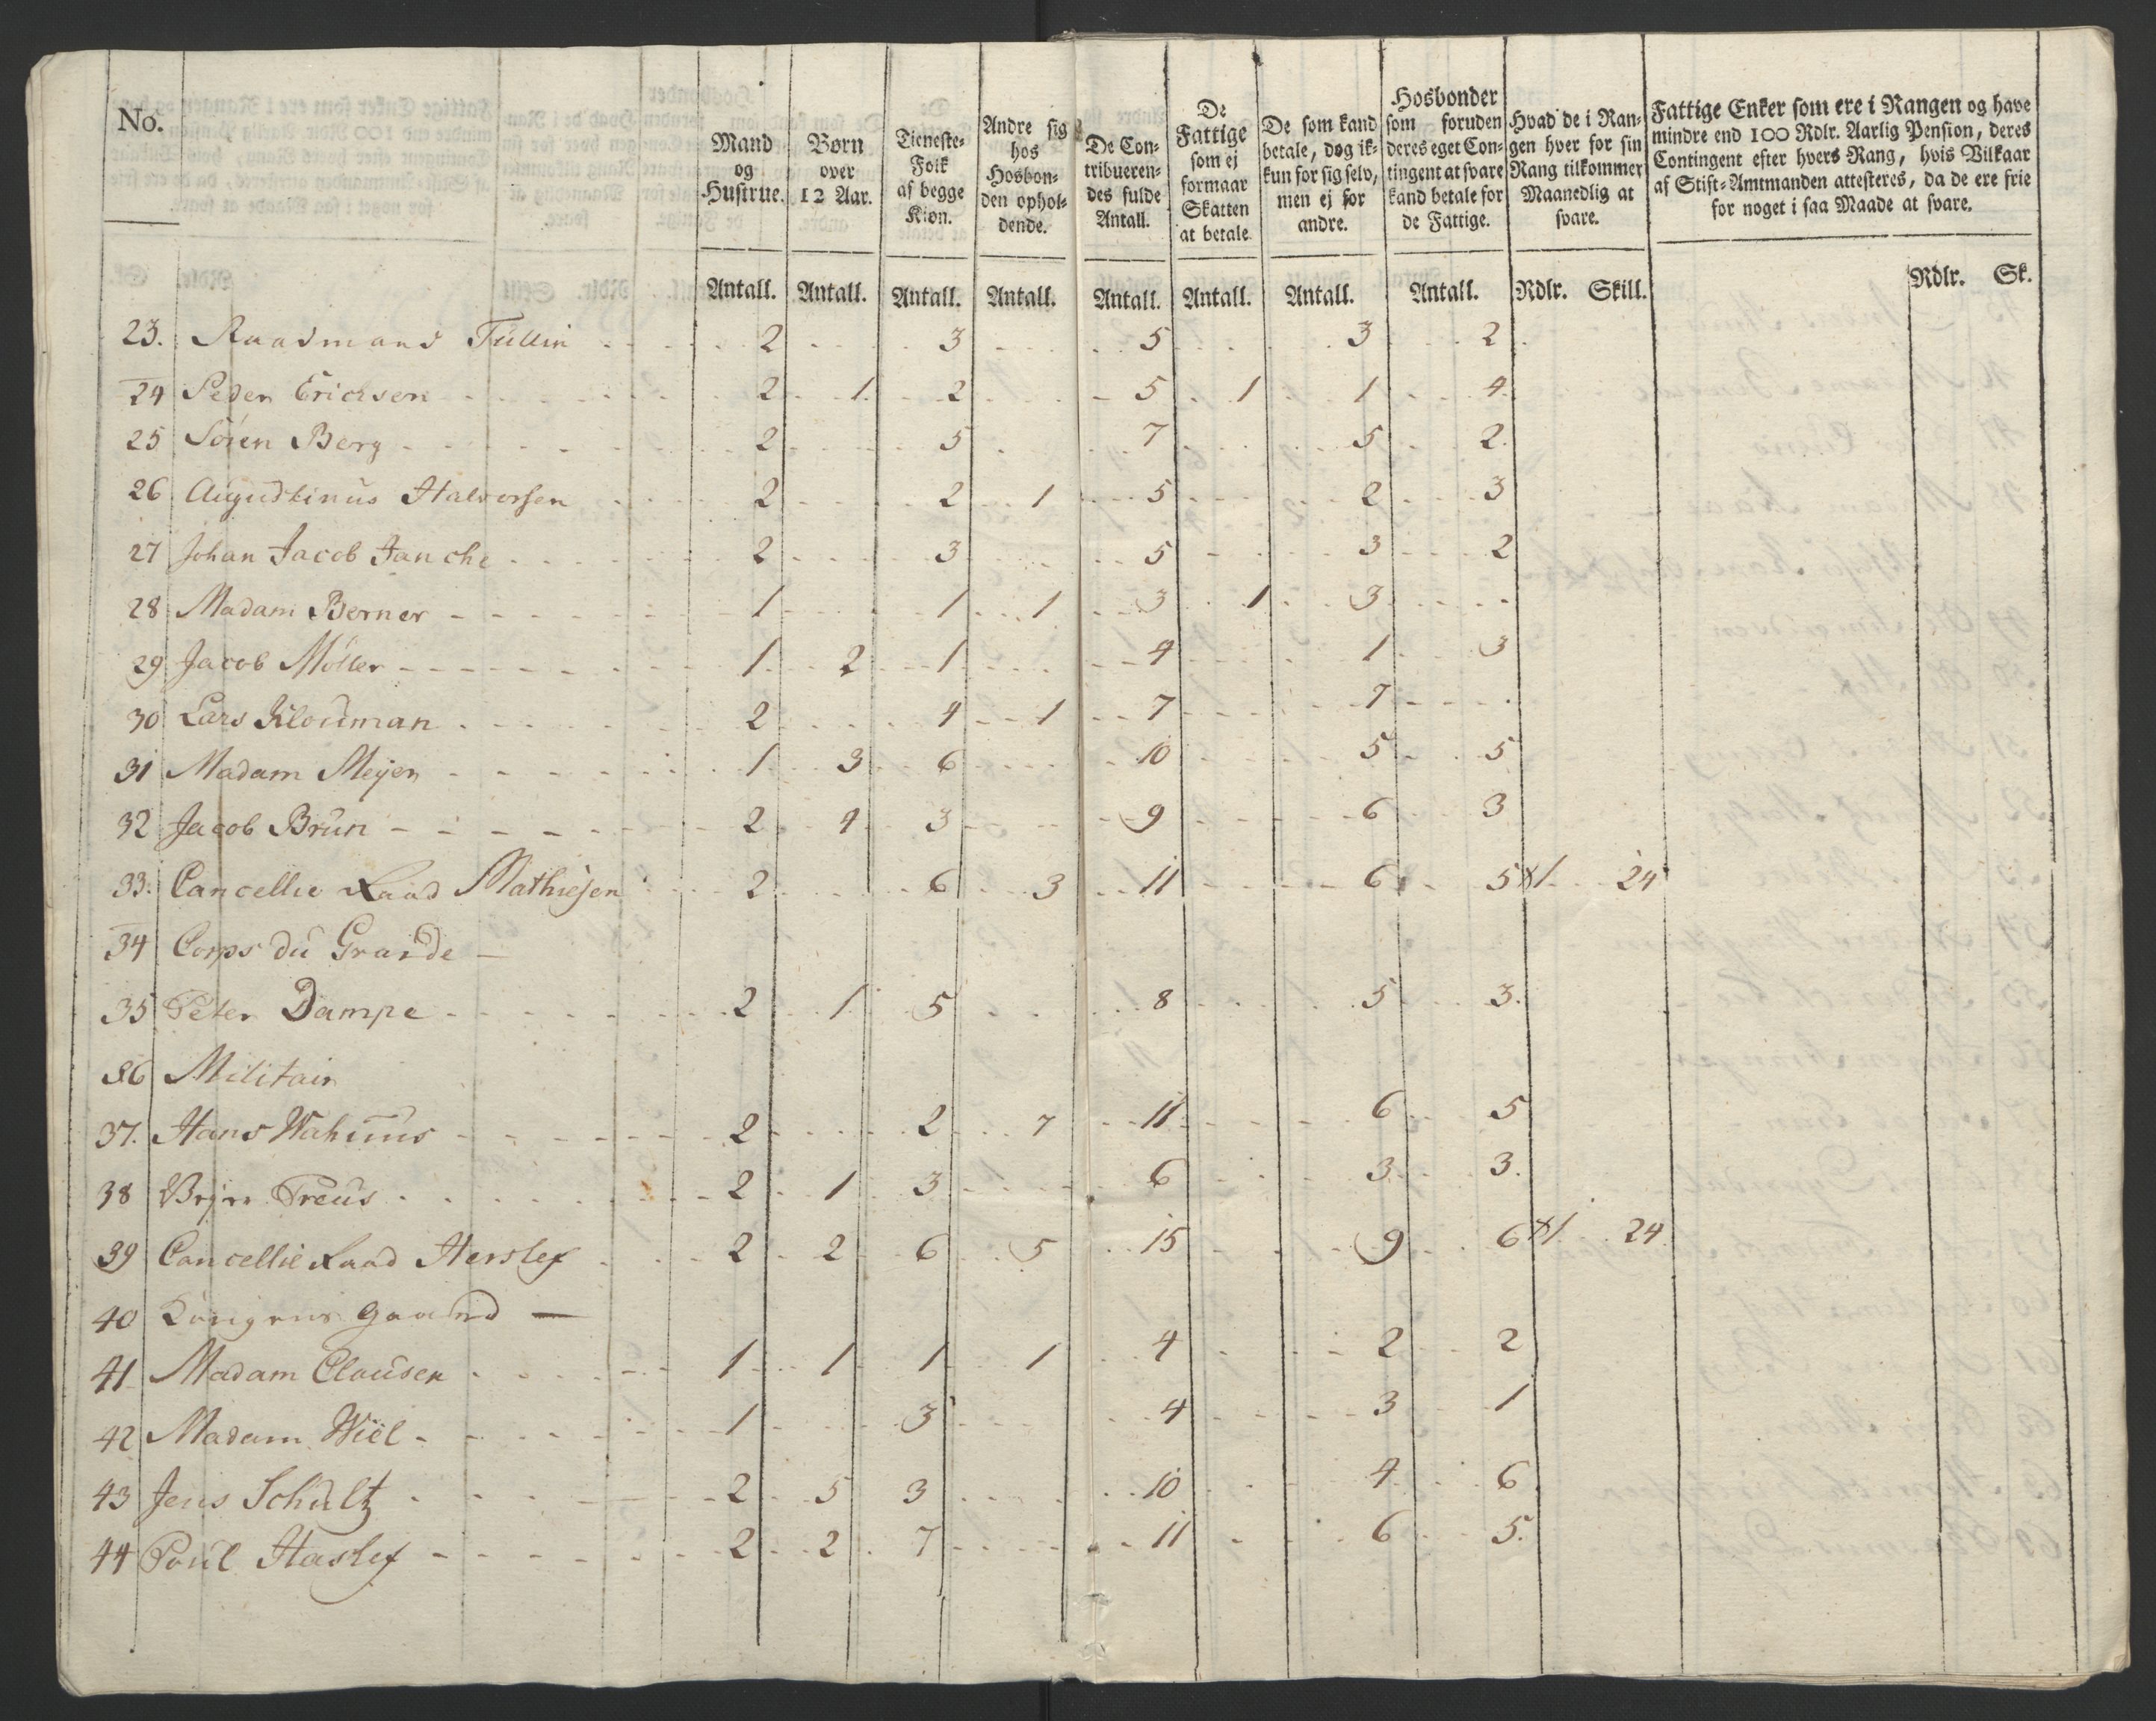 No. | Mand og Hustrue. | Børn over 12 Aar. | Tieneste-Folk af begge Kiøn. | Andre sig hos Hosbon-den ophol-dende. | De Con-tribueren-des fulde Antall. | De Fattige som ej formaar Skatten at betale | De som kand betale, dog ik-kun for sig selv, men ej for andre. | Hosbonder som foruden deres eget Con-tingent at svare kand betale for de Fattige. | Hvad de i Ran-gen hver for sin Rang tilkommer Maanedlig at svare. | Fattige Enker som ere i Rangen og have mindre end 100 Rdlr. Aarlig Pension, deres Contingent efter hvers Rang, hvis Vilkaar af Stift-Amtmanden attesteres, da de ere frie for noget i saa Maade at svare.
Antall. Antall. Antall. Antall. Antall. Antall. Antall. Antall. Rdlr. Skill. Rdlr. Sk.
23. Raadmand Tullin 2 3 5 3 2
24 Peder Ericksen 2 1 2 5 1 1 4
25 Sören Berg 2 5 7 5 2
26 Augustinus Halvorsen 2 2 1 5 2 3
27 Johan Jacob Janche 2 3 5 3 2
28 Madam Berner 1 1 1 3 1 3
29 Jacob Möller 1 2 1 4 1 3
30 Lars Klouman 2 4 1 7 7
31 Madam Meyer 1 3 6 10 5 5
32 Jacob Brun 2 4 3 9 6 3
33. Cancellie Raad Mathiesen 2 6 3 11 6 5 1 24
34 Corps du Grarde
35 Peter Dampe 2 1 5 8 5 3
36 Militair
37. Hans 2 2 7 11 6 5
38 Treus 2 1 3 6 3 3
39 Cancellie Raad Herslef 2 2 6 5 15 9 6 1 24
40 Kongens Gaard
41 Madam Clausen 1 1 1 1 4 2 2
42 Madam Wiel 1 3 4 3 1
43 Jens Schultz 2 5 3 10 4 6
44 Poul Haslef 2 2 7 11 6 5